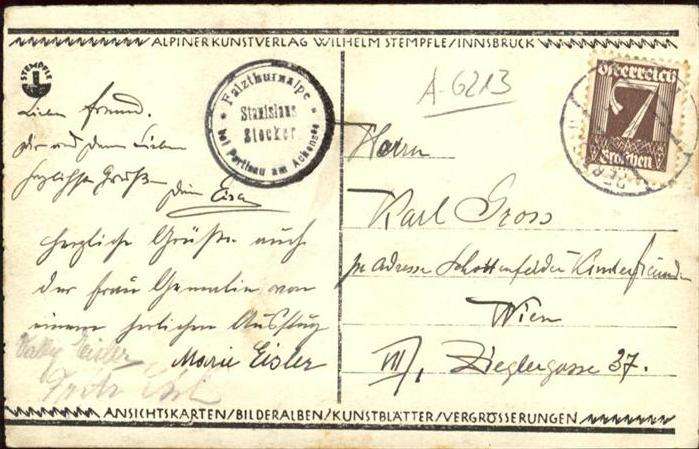 ALPINER KUNSTVERLAG WILHELM STEMPFLE/INNSBRUCK
STEMPFLE
Falzthurnalpe
Stanislaus
Stocker
bei Pertisau am Achensee
A-6213
Österreich
7
Groschen
Lieber Freund.
Dir und deinen Lieben
herzlichste Grüße
dein
herzliche Grüße auch
der Frau Gemalin von
einem herlichen Ausflug
Marie Eisler
Vally Eisler
Herrn
Karl Gross
per Adresse Schottenfelder Kinderfreunde
Wien
VII, Zieglergasse 37.
ANSICHTSKARTEN/BILDERALBEN/KUNSTBLÄTTER/VERGRÖSSERUNGEN